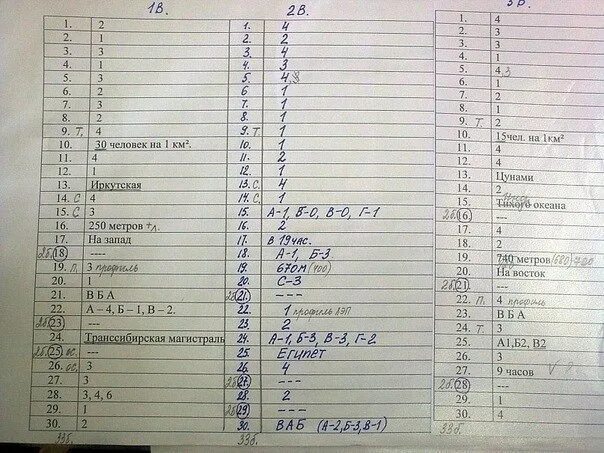 1В.
1. 2
2. 1
3. 3
4. 1
5. 3
6. 2
7. 3
8. 2
9. Т. 4
10. 30 человек на 1 км².
11. 4
12. 1
13. Иркутская
14. С 4
15. С 3
16. 250 метров +л.
17. На запад
2б. 18. ----
19. П. 3 профиль
20. 1
21. В Б А
22. А – 4, Б – 1, В – 2.
2б. 23. ---
24. Транссибирская магистраль
2б. 25. ос. ---
26. ос. 3
27. 3
28. 3, 4, 6
29. 1
30. 2
33б.
2В.
1. 4
2. 2
3. 4
4. 3
5. 4 3
6 1
7. 1
8. 1
9. Т. 1
10. 1
11. 2
12. 1
13. С. 4
14. С. 1
15. А-1, Б-0, В-0, Г-1
16. 2
17. В 19 час.
18. А-1, Б-3
19. 670м (700)
20. С-3
2б 21. ---
22. 1 профиль ЛЭП
23. 2
24. А-1, Б-3, В-3, Г-2
25. Египет
26. 4
2б 27. ---
28. 2
2б 29. ---
30. ВАБ (А-2, Б-3, В-1)
33б.
3В.
1. 4
2. 3
3. 3
4. 1
5. 4 3
6. 1
7. 2
8. 1
9. Т 2
10. 15чел. на 1 км²
11. 4
12. 1
13. Цунами
14. 2
15. Тихого океана
2б. 16. ---
17. 4
18. 2
19. 740 метров
20. На восток
2б. 21. ---
22. П. 4 профиль
23. В Б А
24. Т. 3
25. А1,Б2, В2
26. 3
27. 9 часов
2б. 28. ---
29. 1
30. 4
33б.